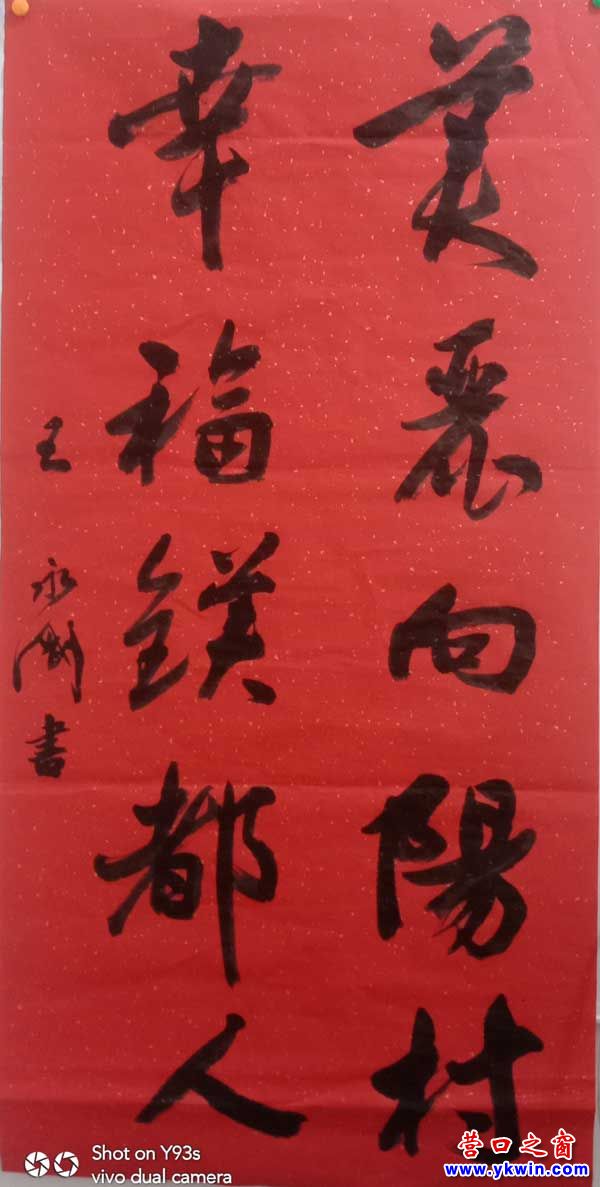 美麗向陽村
幸福鎂都人
王永剛書
Shot on Y93s
vivo dual camera
营口之窗
www.ykwin.com